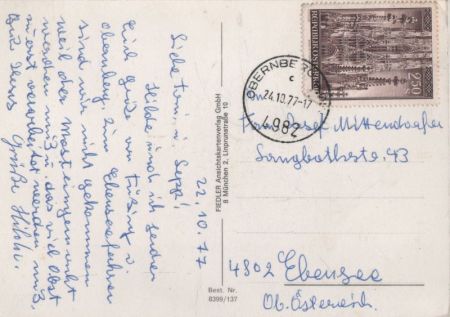 22.10.77
Liebe Toni u. Sepp!
Hilde und ich senden
Euch Grüße von
Obernberg. Zum Ebensee fahren
sind wir nicht gekommen
weil der Most eingem
werden muß u. das viel Obst
verarbeitet werden muß.
Grüße Hilde.
FIEDLER Ansichtskartenverlag GmbH
8 München 2, Linprunstraße 10
Best. Nr.
8399/137
REPUBLIK ÖSTERREICH
2.50
OBERNBERG
c
24.10.77-17
4982
Josef Mittendorfer
Langbathstr. 43
4802 Ebensee
Ob. Österreich.